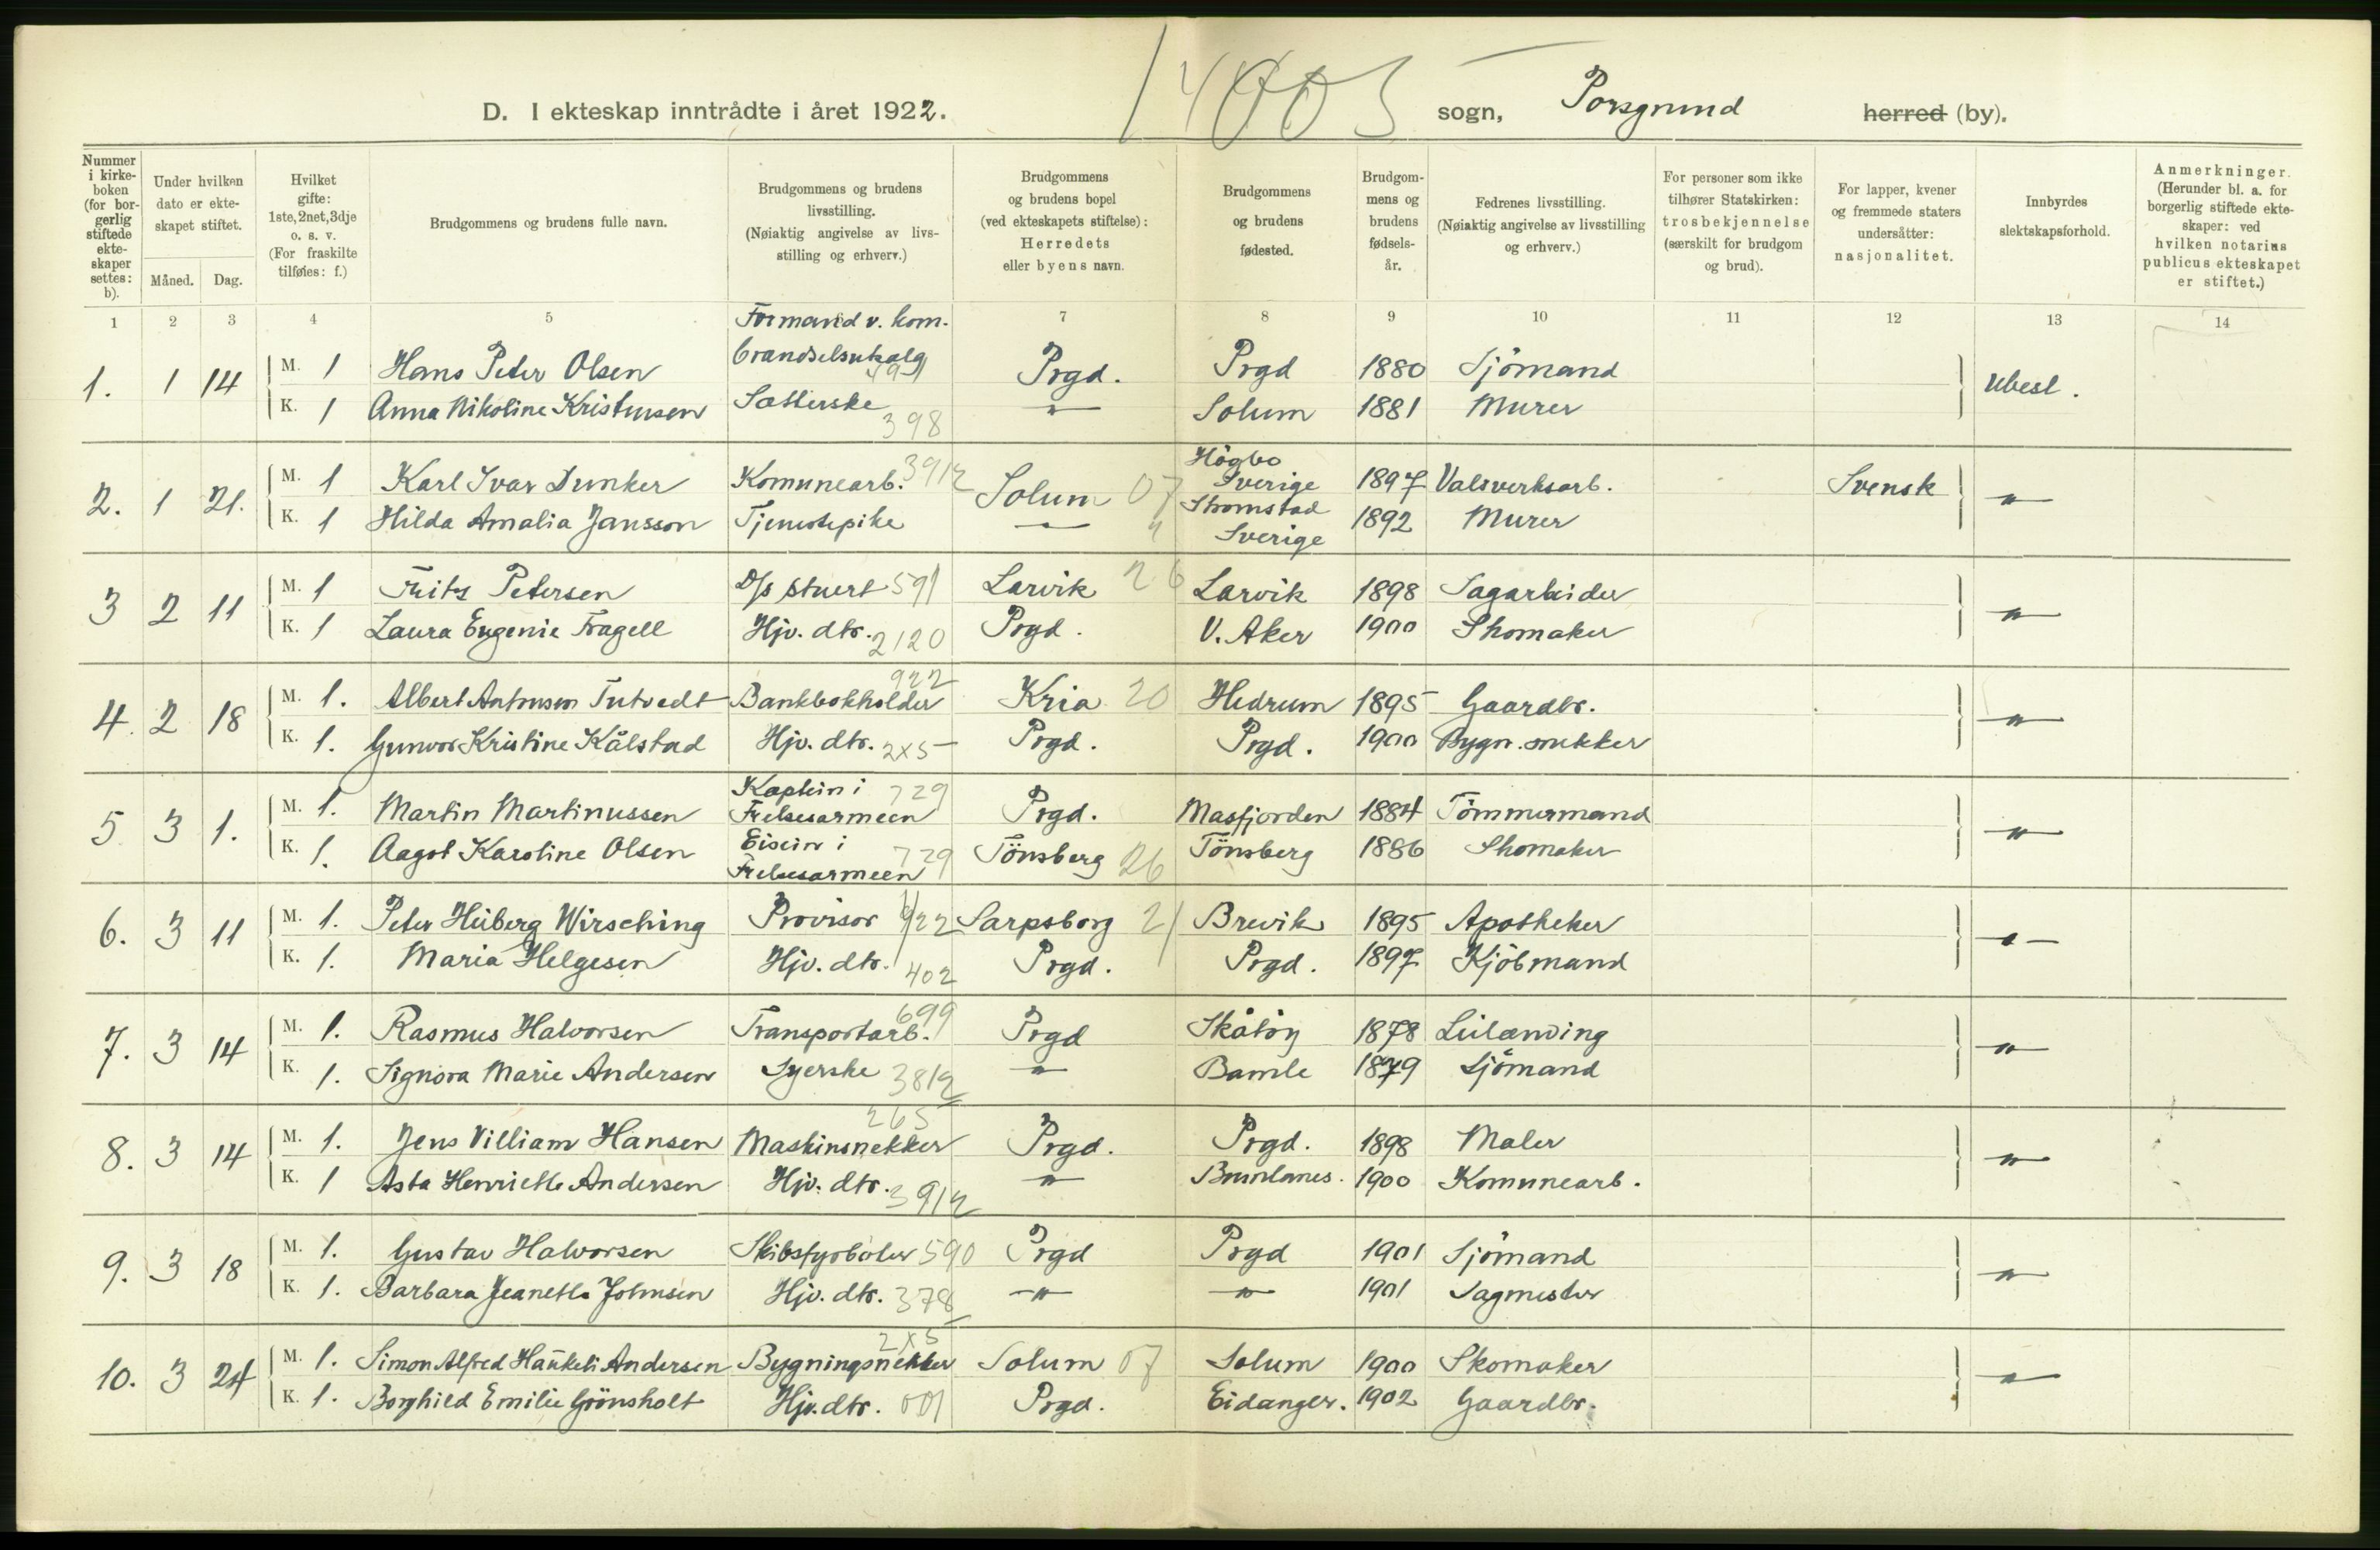 D. I ekteskap inntrådte i året 1922. sogn, Porsgrund herred (by).
Nummer i kirkeboken (for borgerlig stiftede ekteskaper settes: b).
Under hvilken dato er ekteskapet stiftet. Måned. Dag.
Hvilket gifte: 1ste, 2net, 3dje o. s. v. (For fraskilte tilføies: f.)
Brudgommens og brudens fulle navn.
Brudgommens og brudens livsstilling. (Nøiaktig angivelse av livsstilling og erhverv.)
Brudgommens og brudens bopel (ved ekteskapets stiftelse): Herredets eller byens navn.
Brudgommens og brudens fødested.
Brudgommens og brudens fødselsår.
Fedrenes livsstilling. (Nøiaktig angivelse av livsstilling og erhverv.)
For personer som ikke tilhører Statskirken: trosbekjennelse (særskilt for brudgom og brud).
For lapper, kvener og fremmede staters undersåtter: nasjonalitet.
Innbyrdes slektskapsforhold.
Anmerkninger. (Herunder bl. a. for borgerlig stiftede ekteskaper: ved hvilken notarius publicus ekteskapet er stiftet.)
1 2 3 4 5 7 8 9 10 11 12 13 14
1. 1 14 M. 1 Hans Peter Olsen Formand v. kom. brandselsutvalg Prgd. Prgd 1880 Sjömand Ubesl.
K. 1 Anna Nikoline Kristensen 398 — " — Solum 1881 Murer
2. 1 21. M. 1 Karl Ivar Dunker Komunearb. 3912 Solum 07 Högbo Sverige 1897 Valsverksarb. Svensk — " —
K. 1 Hilda Amalia Jansson Tjenestepike — " — Strömstad Sverige 1892 Murer
3 2 11 M. 1 Frits Petersen D/s stuert 591 Larvik 26 Larvik 1898 Sagarbeider — " —
K. 1 Laura Eugenie Fragell Hjv. dtr. 2120 Prgd. V. Aker 1900 Skomaker
4. 2 18 M. 1. Albert Antonsen Tutvedt Bankbokholder 922 Kria 20 Hedrum 1895 Gaardbr. — " —
K. 1. Gunvor Kristine Kålstad Hjv. dtr. 2x5 Prgd. Prgd. 1900 Bygn. snekker
5 3 1. M. 1. Martin Martinussen Kaptein i Frelsesarmeen 729 Prgd. Masfjorden 1884 Tömmermand — " —
K. 1. Aagot Karoline Olsen Frelsesarmeen 729 Tönsberg 26 Tönsberg 1886 Skomaker
6. 3 11 M. 1. Peter Heiberg Wirsching Provisor 922 Sarpsborg 21 Brevik 1895 Apotheker — " —
K. 1. Maria Helgesen Hjv. dtr. 402 Prgd. Prgd. 1897 Kjöbmand
7. 3 14 M. 1. Rasmus Halvorsen Transportarb. 699 Prgd Skåtöy 1878 Leilænding — " —
K. 1. Signora Marie Andersen Syerske 3812 — " — Bamle 1879 Sjömand
8. 3 14 M. 1. Jens Villiam Hansen Maskinsnekker 265 Prgd. Prgd. 1898 Maler — " —
K. 1 Asta Henriette Andersen Hjv. dtr. 3912 — " — Brunlanes. 1900 Komunearb.
9. 3 18 M. 1. Gustav Halvorsen Skibsfyrböter 590 Prgd Prgd 1901 Sjömand — " —
K. 1. Barbara Jeanette Johnsen Hjv. dtr. 378 — " — — " — 1901 Sagmester
10. 3 24 M. 1. Simon Alfred Hankeli Andersen Bygningsnekker 2x5 Solum 07 Solum 1900 Skomaker — " —
K. 1. Borghild Emilie Grönsholt Hjv. dtr. 001 Prgd. Eidanger. 1902 Gaardbr.